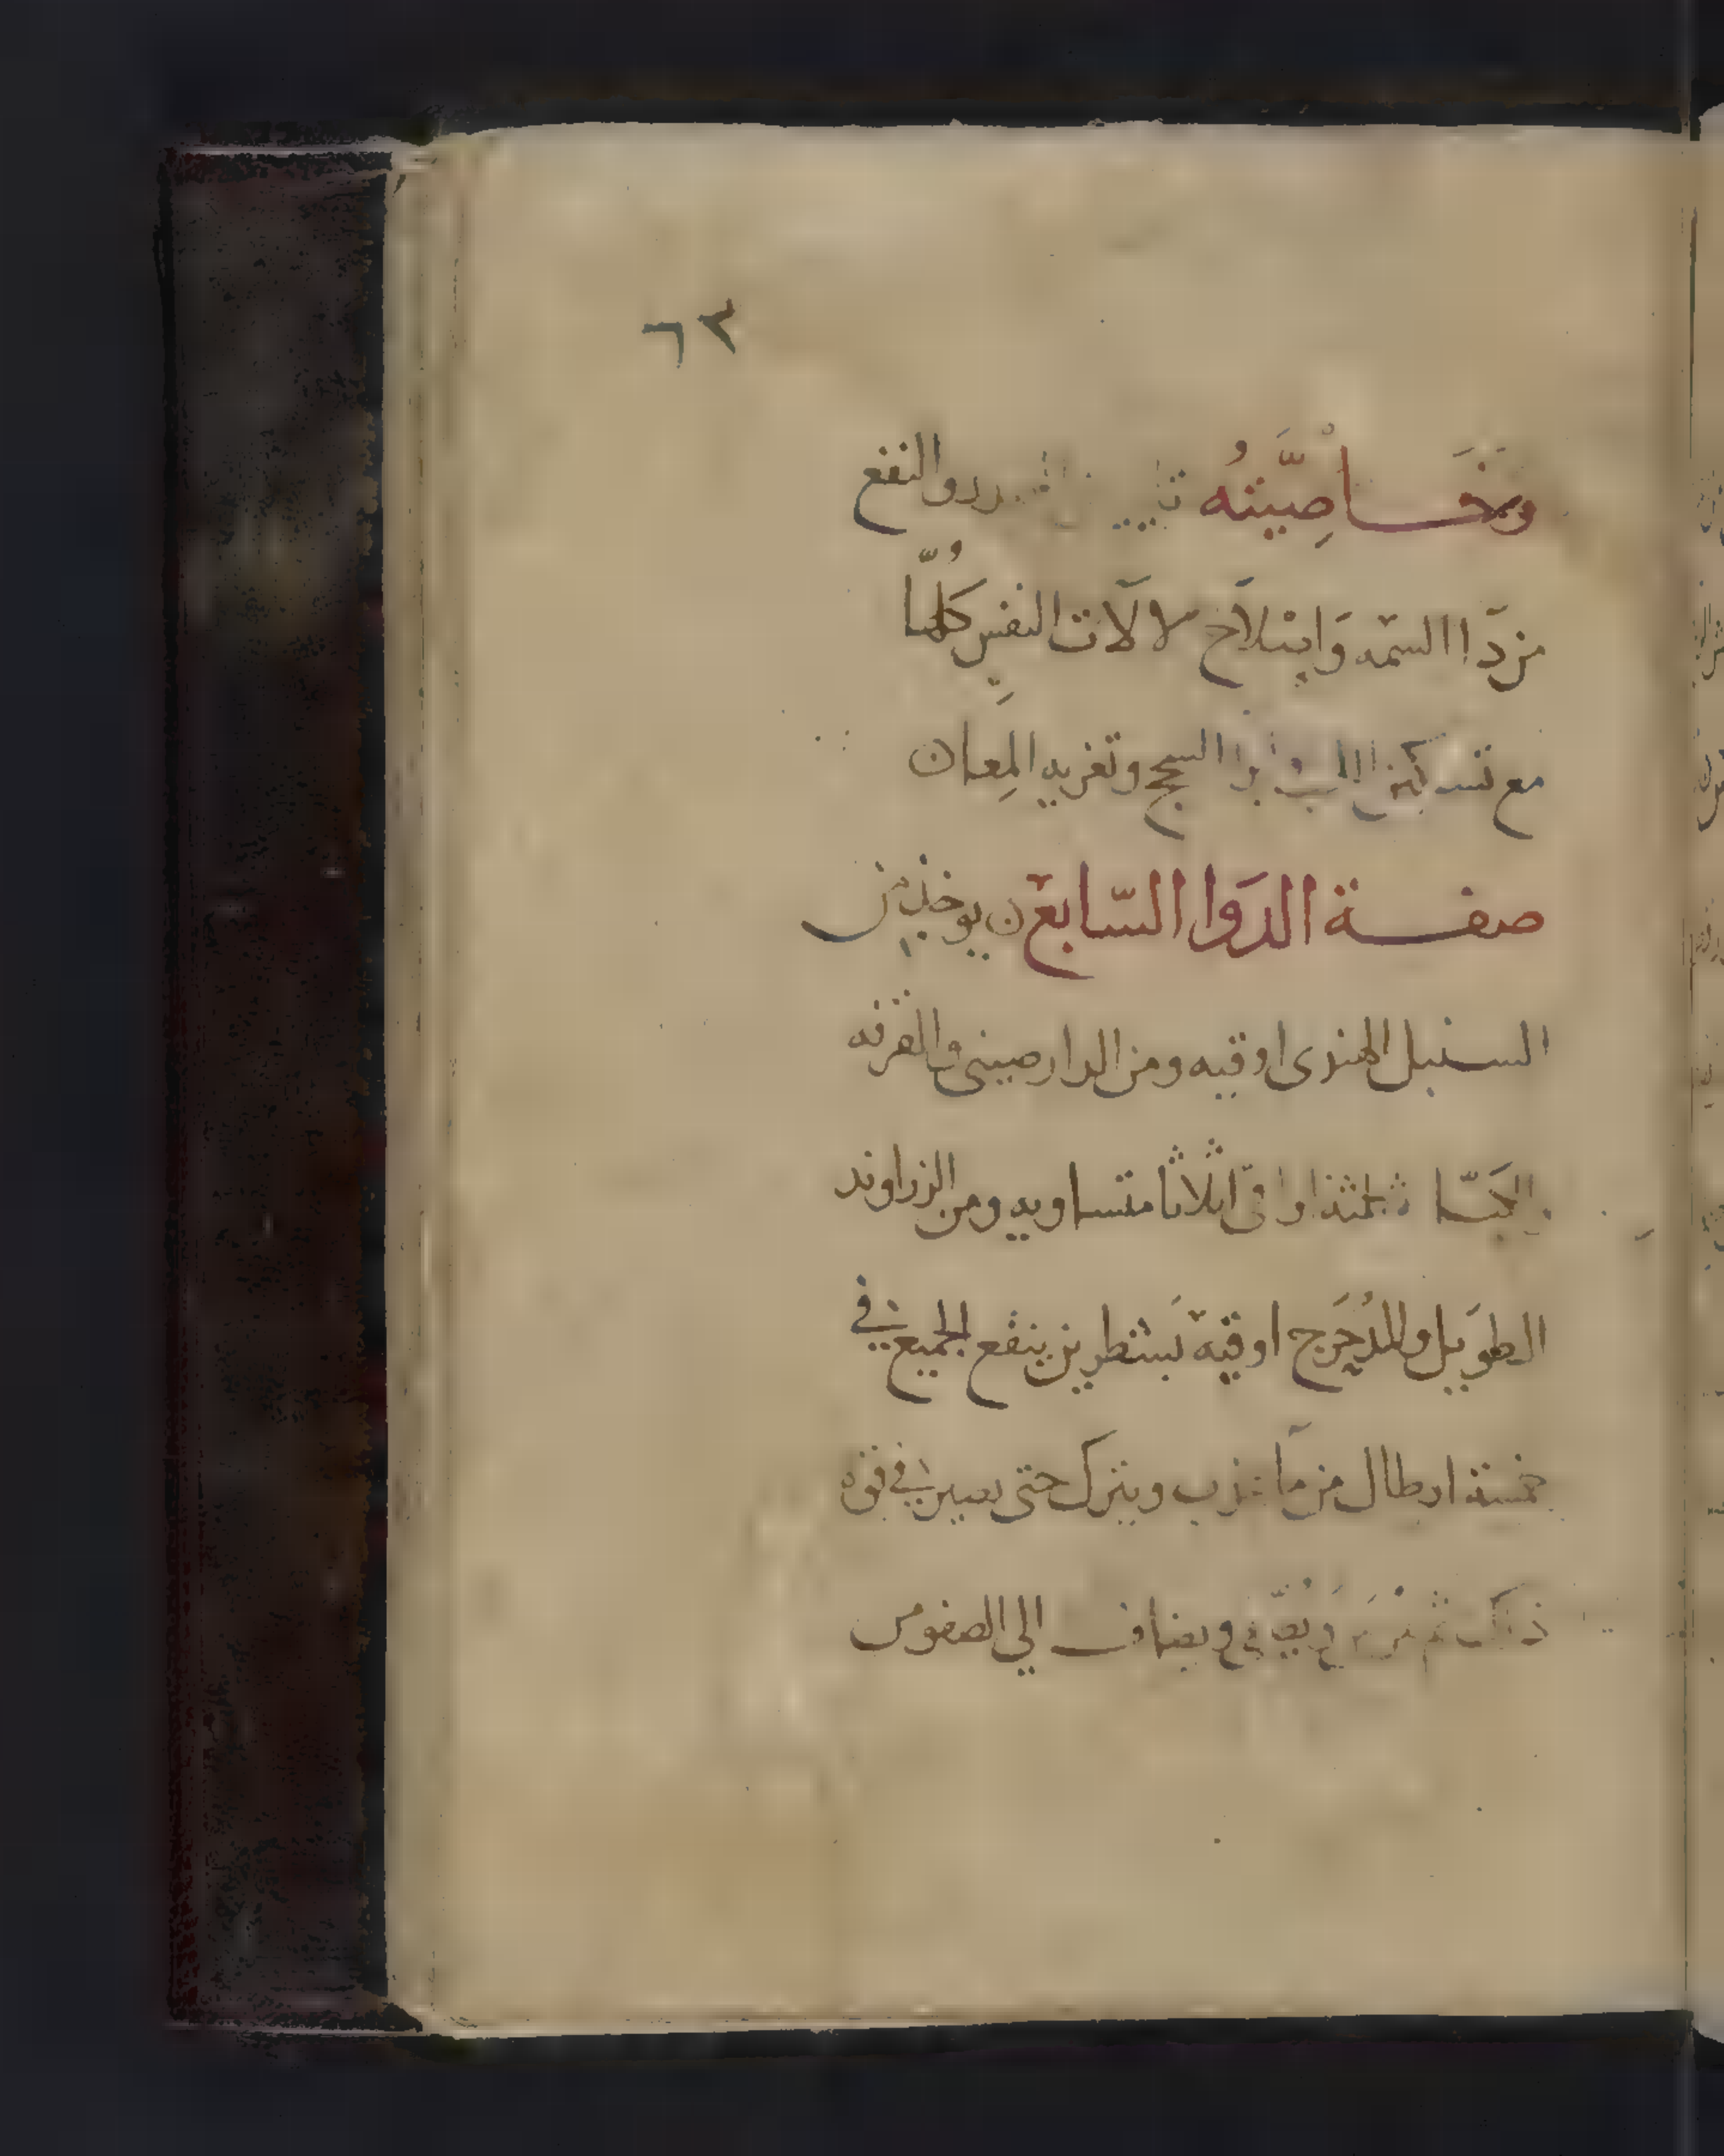 ٦٢
وخَاصِيَّتُه والنفع
من دَا السمه وَاصلاح لالَات النفس كُلها
مع السحج وتغريه المِعا ن
صفة الدَوا السّابع ن يوخذ من
السنبل الهندى اوقيه ومن الدارصينى والقرفه
ثلثة اواقى اثلاثا متساويه ومن الزراوند
الطوَيل والمدُحَرج اوقيه بَشطرين ينقع الجميع في
خمسة ارطال من مآ عذب ويترك حتى يصير في قوه
ذلك ثم ويضاف الي الصفو من